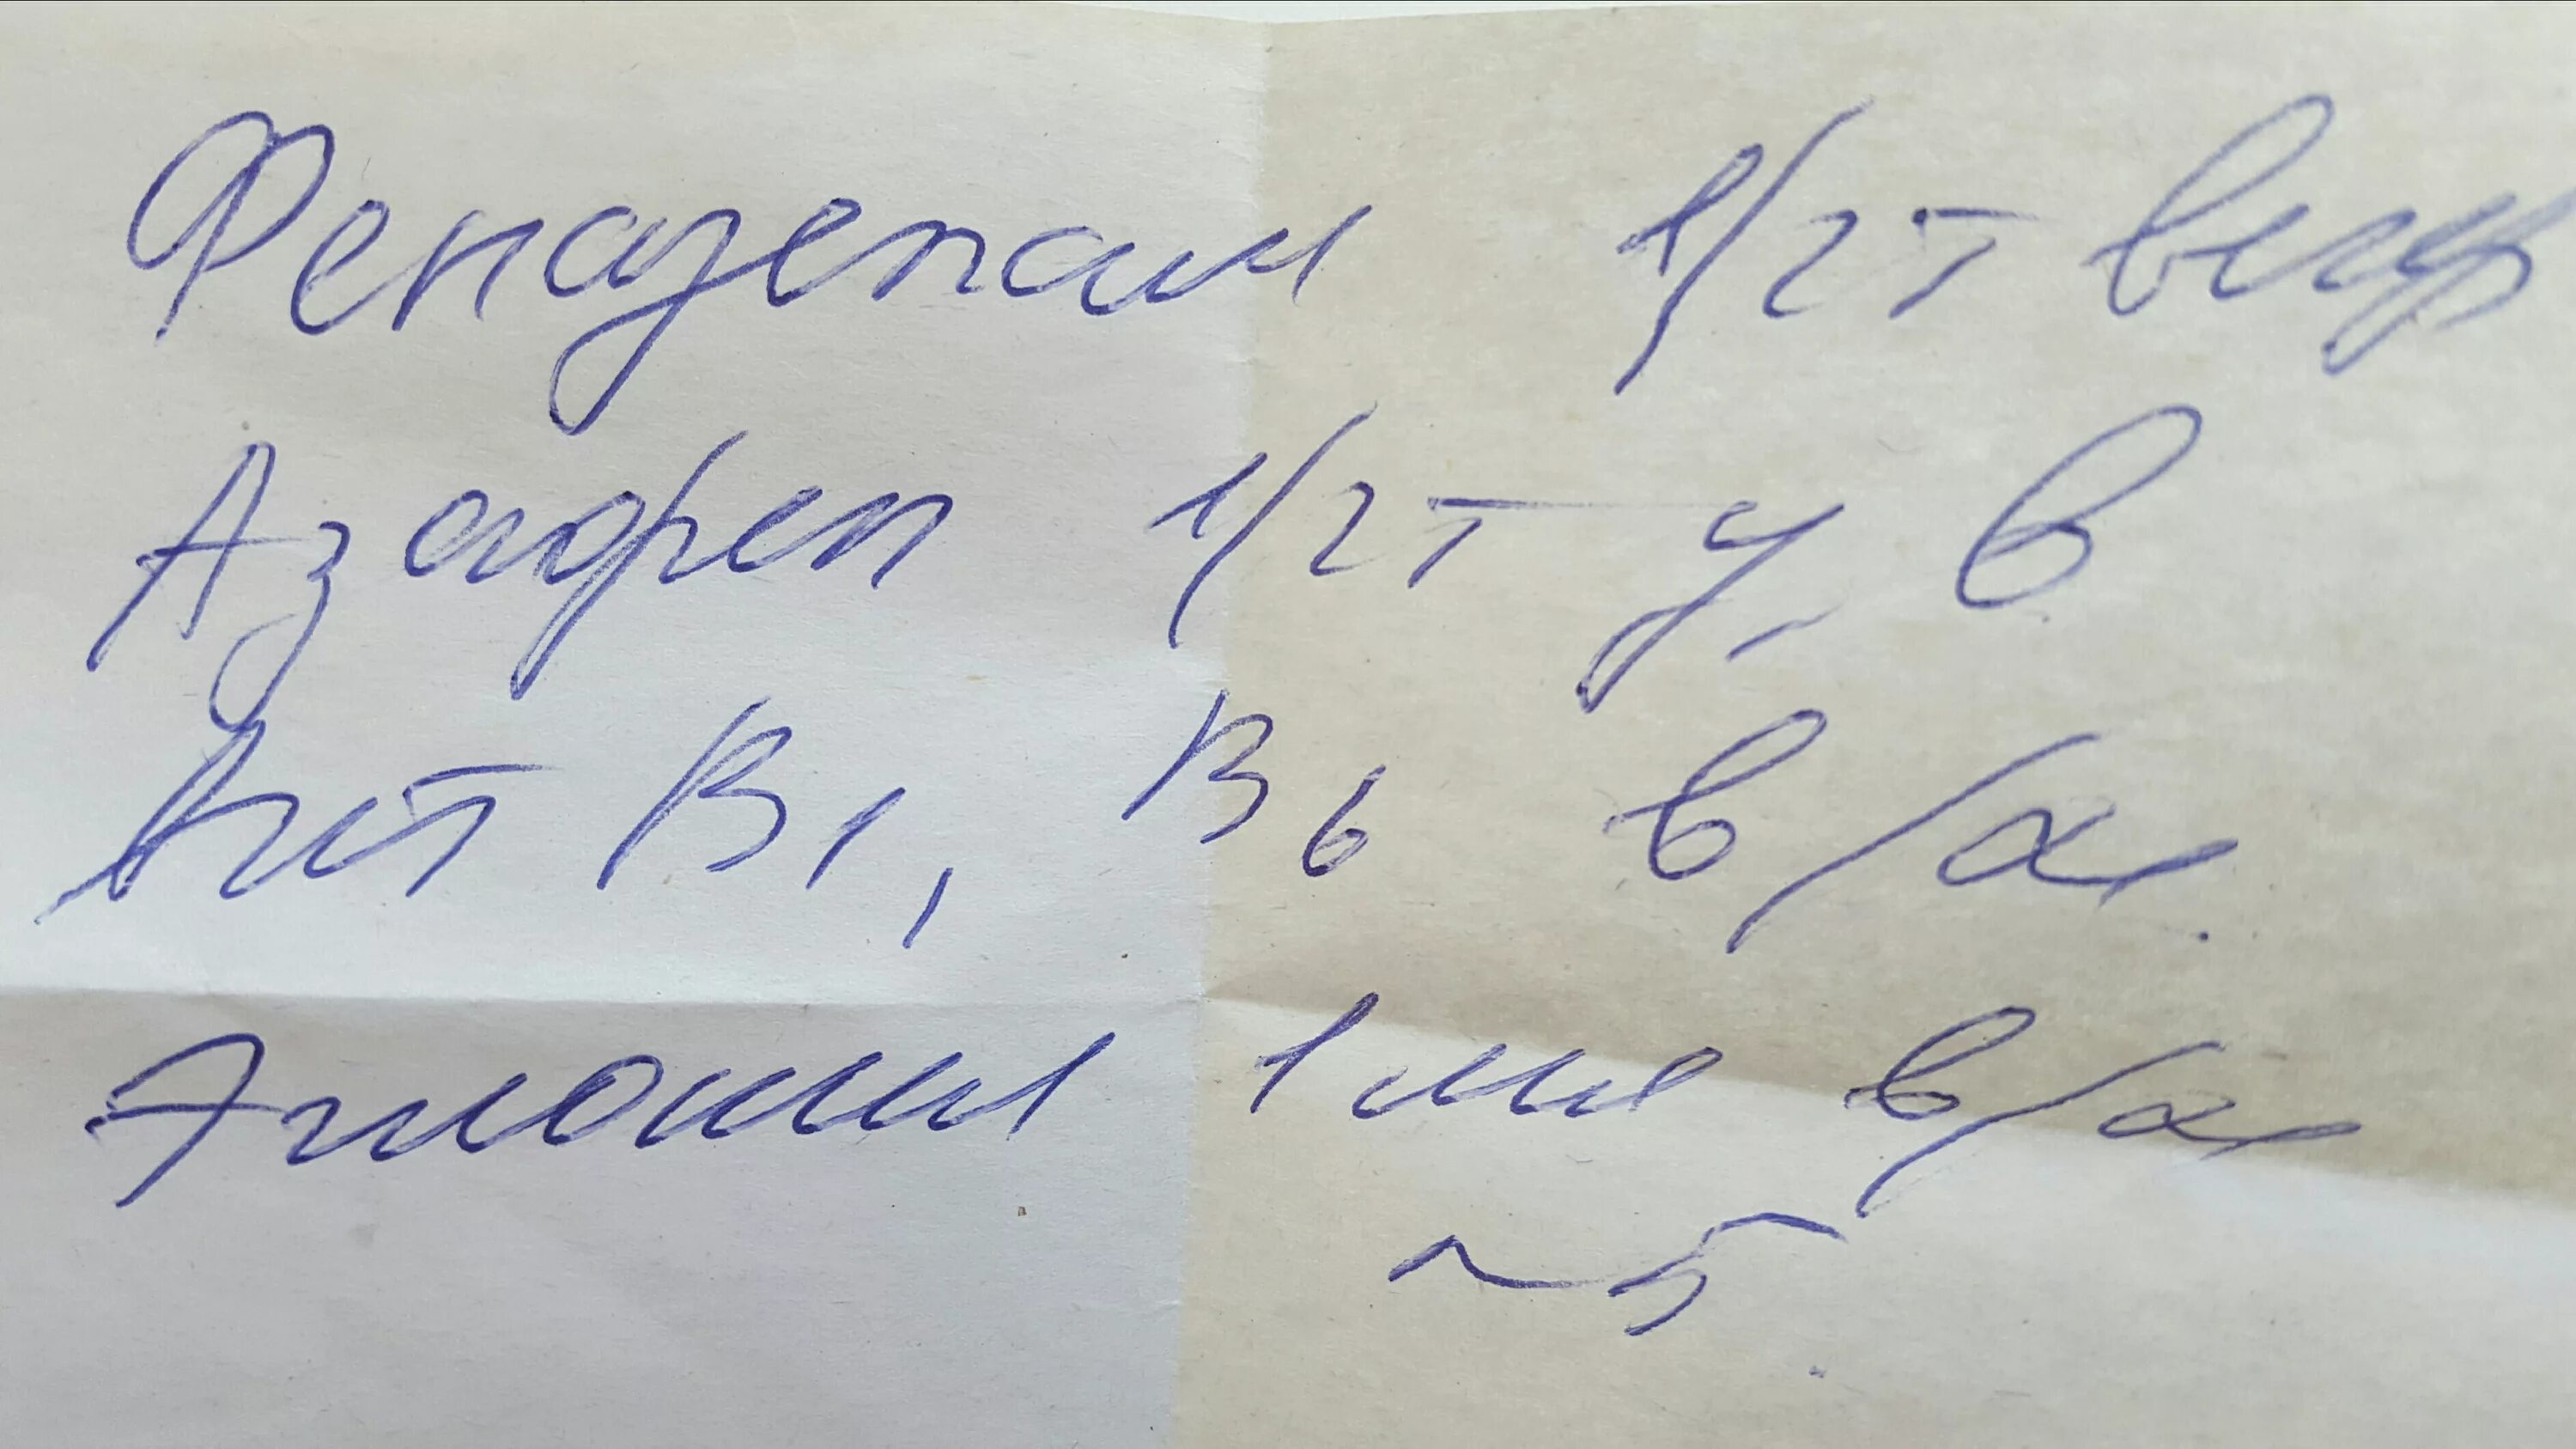 Феназепам 1/2т веч
Азафен 1/2т у, в
Вит В1, В6 в/м
1 мл в/м
N5